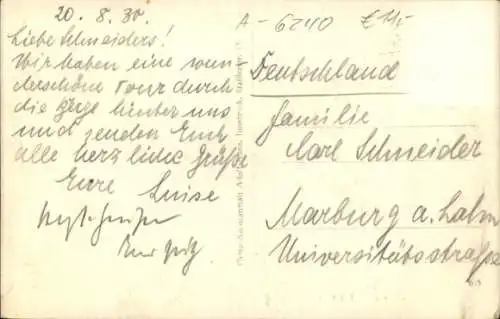 20. 8. 30.
Liebe Schneiders!
Wir haben eine wun-
derschöne Tour durch
die hinter uns
und senden Euch
alle herzliche Grüße
Eure Luise
A-6240 £11,-
Deutschland
Familie
Karl Schneider
Marburg a. Lahn
Universitätsstraße